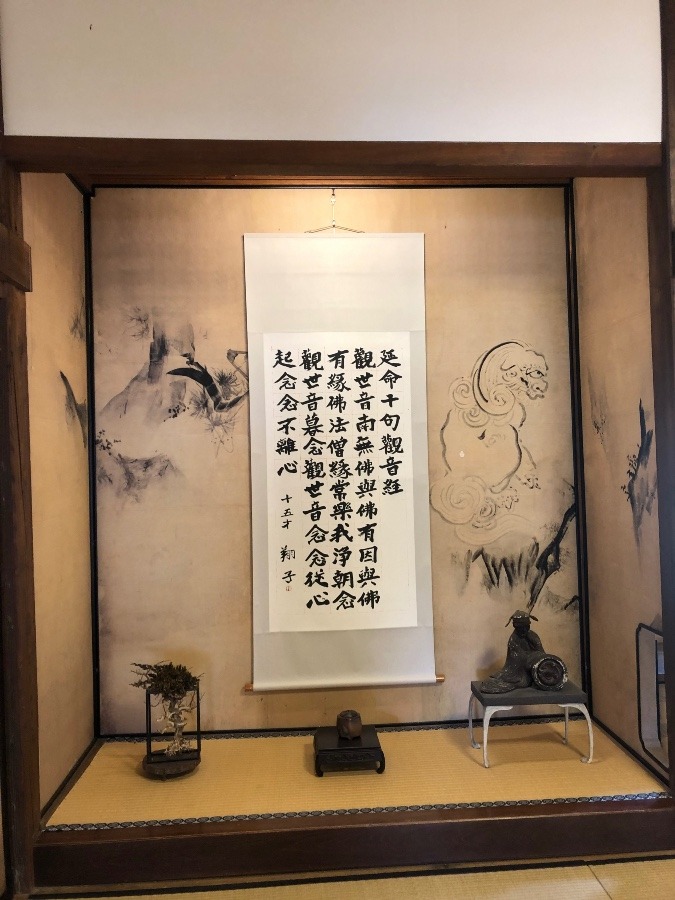 延命十句觀音経
觀世音南無佛與佛有因與佛
有緣佛法僧緣常樂我淨朝念
觀世音暮念觀世音念念從心
起念念不離心
十五才 翔子